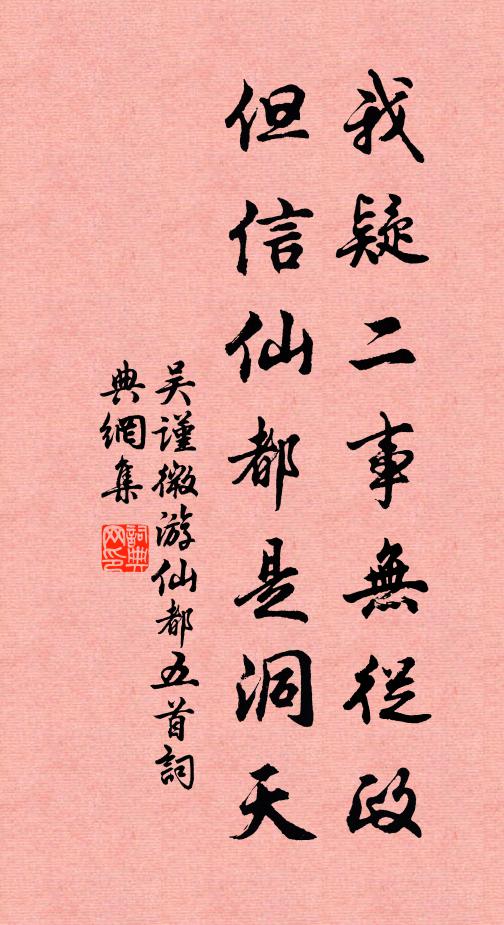 我疑二事無從政
但信仙都是洞天
吴謹微游仙都五首詞
典網集
詞典
网印